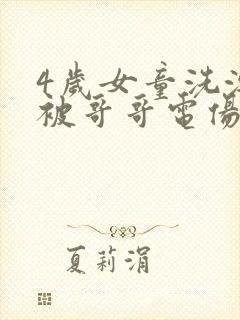 4歲女童洗
被哥哥電傷
夏莉涓